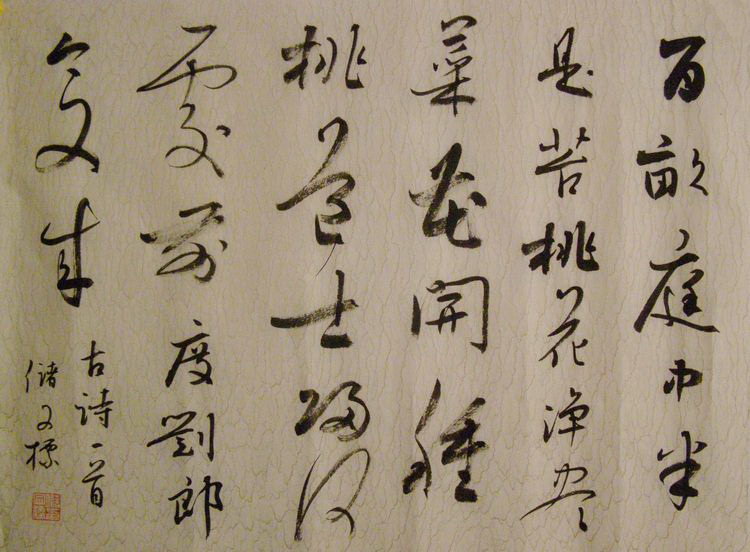 百畝庭中半
是苔桃花淨盡
菜花開種
桃道士歸何
處前度劉郎
今又来
古詩一首
儲文標